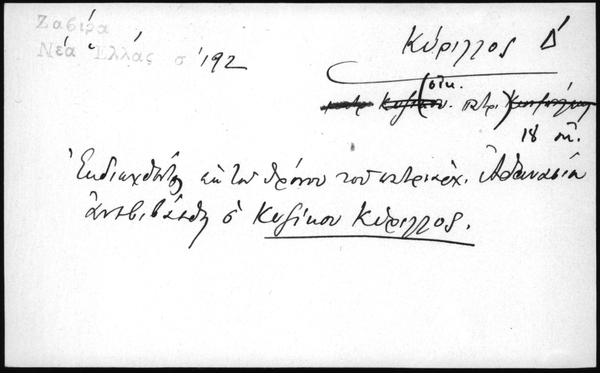 Ζαβίρα
Νέα Ἑλλάς σ 192
Κύριλλος Δ΄
οἰκ.
πατρ. Κυζίκου. πατρι
18 αἰ.
Ἐκδιωχθέντος ἐκ τοῦ θρόνου τοῦ πατριάρχ. Ἀθανασίου
ἀνεβιβάσθη ὁ Κυζίκου Κύριλλος.